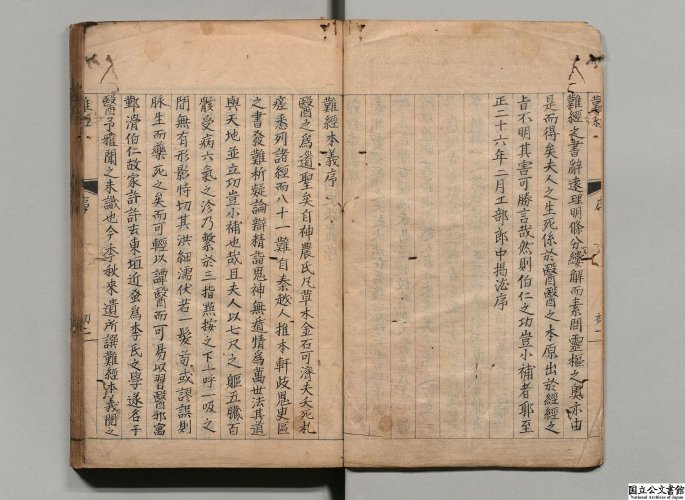 難經之書辭遠理明條分縷解而素問靈樞之奧亦由
是而得矣夫人之生死係於醫醫之本原出於經經之
旨不明其害可勝言哉然則伯仁之功豈小補者耶至
正二十六年二月工部郎中揭汯序
難經本義序
醫之為道聖矣自神農氏凡草木金石可濟夫夭死札
瘥悉列諸經而八十一難自秦越人推本軒岐鬼臾區
之書發難析疑論辯精詣鬼神無遁情為萬世法其道
與天地並立功豈小補也哉且夫人以七尺之軀五臟百
骸受病六氣之沴乃繫於三指點按之下一呼一吸之
間無有形影特切其洪細濡伏若一髮苟或謬誤則
脉生而藥死之矣而可輕以譚醫而可易以習醫邪寓
鄞滑伯仁故家許許去東垣近蚤為李氏之學遂名于
醫予雖聞之未識也今季秋來遺所譔難經本義閱之
難經
序
初二
序
初一
国立公文書館
National Archives of Japan